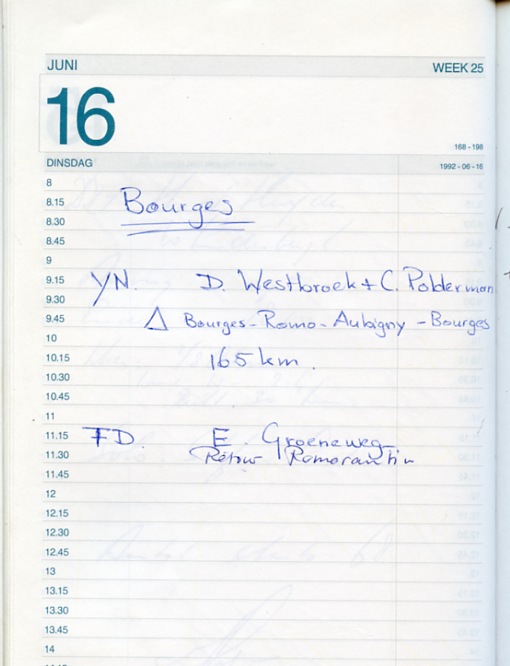 JUNI WEEK 25
16
168 - 198
DINSDAG 1992 - 06 - 16
8
8.15 Bourges
8.30
8.45
9
9.15 YN. D. Westbroek + C. Polderman
9.30
9.45 △ Bourges - Romo - Aubigny - Bourges
10
10.15 165 km.
10.30
10.45
11
11.15 FD. E. Groeneweg
11.30 Retour Romorantin
11.45
12
12.15
12.30
12.45
13
13.15
13.30
13.45
14